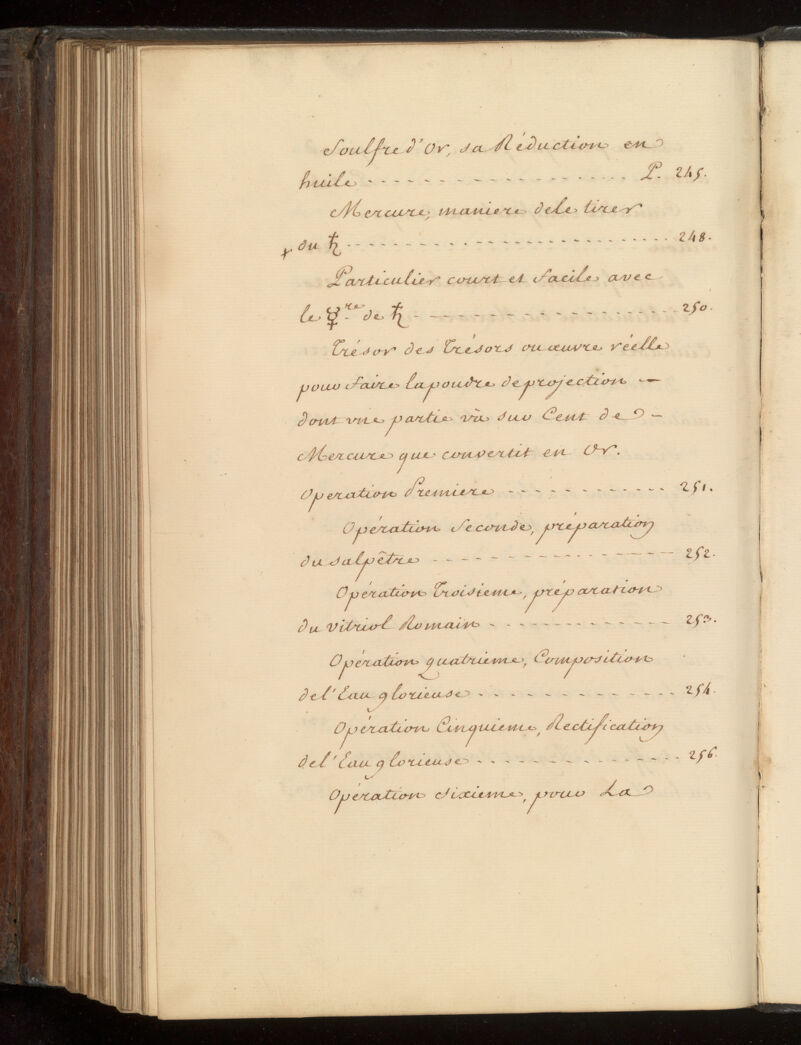 Soulfre d'Or, sa Réduction en
huile - - - - - - - - - - - - - - - - - - P. 245.
Mercure, maniere dele tirer
+ du ♄ - - - - - - - - - - - - - - - - - - 248.
Particulier court et facile avec
le ☿.re de ♄ - - - - - - - - - - - - - - - 250.
Trésor des Trésors ou œuvre réelle
pour faire la poudre de projection —
dont vne partie và sur Cent de —
Mercure que convertit en Or.
Operation Premiere - - - - - - - - - - - 251.
Opération Seconde, préparation
du salpêtre - - - - - - - - - - - - - - - 252.
Opération Troisieme, préparation
du vitriol Romain - - - - - - - - - - - - 253.
Opération quatrieme, Composition
de l'Eau glorieuse - - - - - - - - - - - - 254.
Opération Cinquieme, Rectification
de l'Eau glorieuse - - - - - - - - - - - - 256.
Opération sixieme, pour La